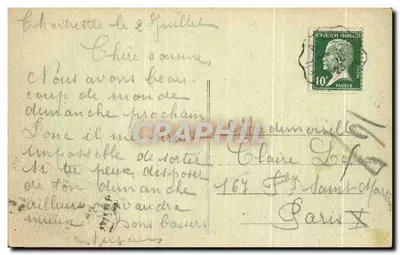 Chartrettes le 2 Juillet
Chère cousine,
Nous avons beau-
coup de monde
dimanche prochain
Donc il m'est
impossible de sortir
si tu peux disposer
de ton dimanche
ailleurs vaudra
mieux bons baisers
REPUBLIQUE FRANCAISE
10c
PASTEUR
CPARAMA
Mademoiselle
Claire
167 Fbg Saint Martin
Paris X